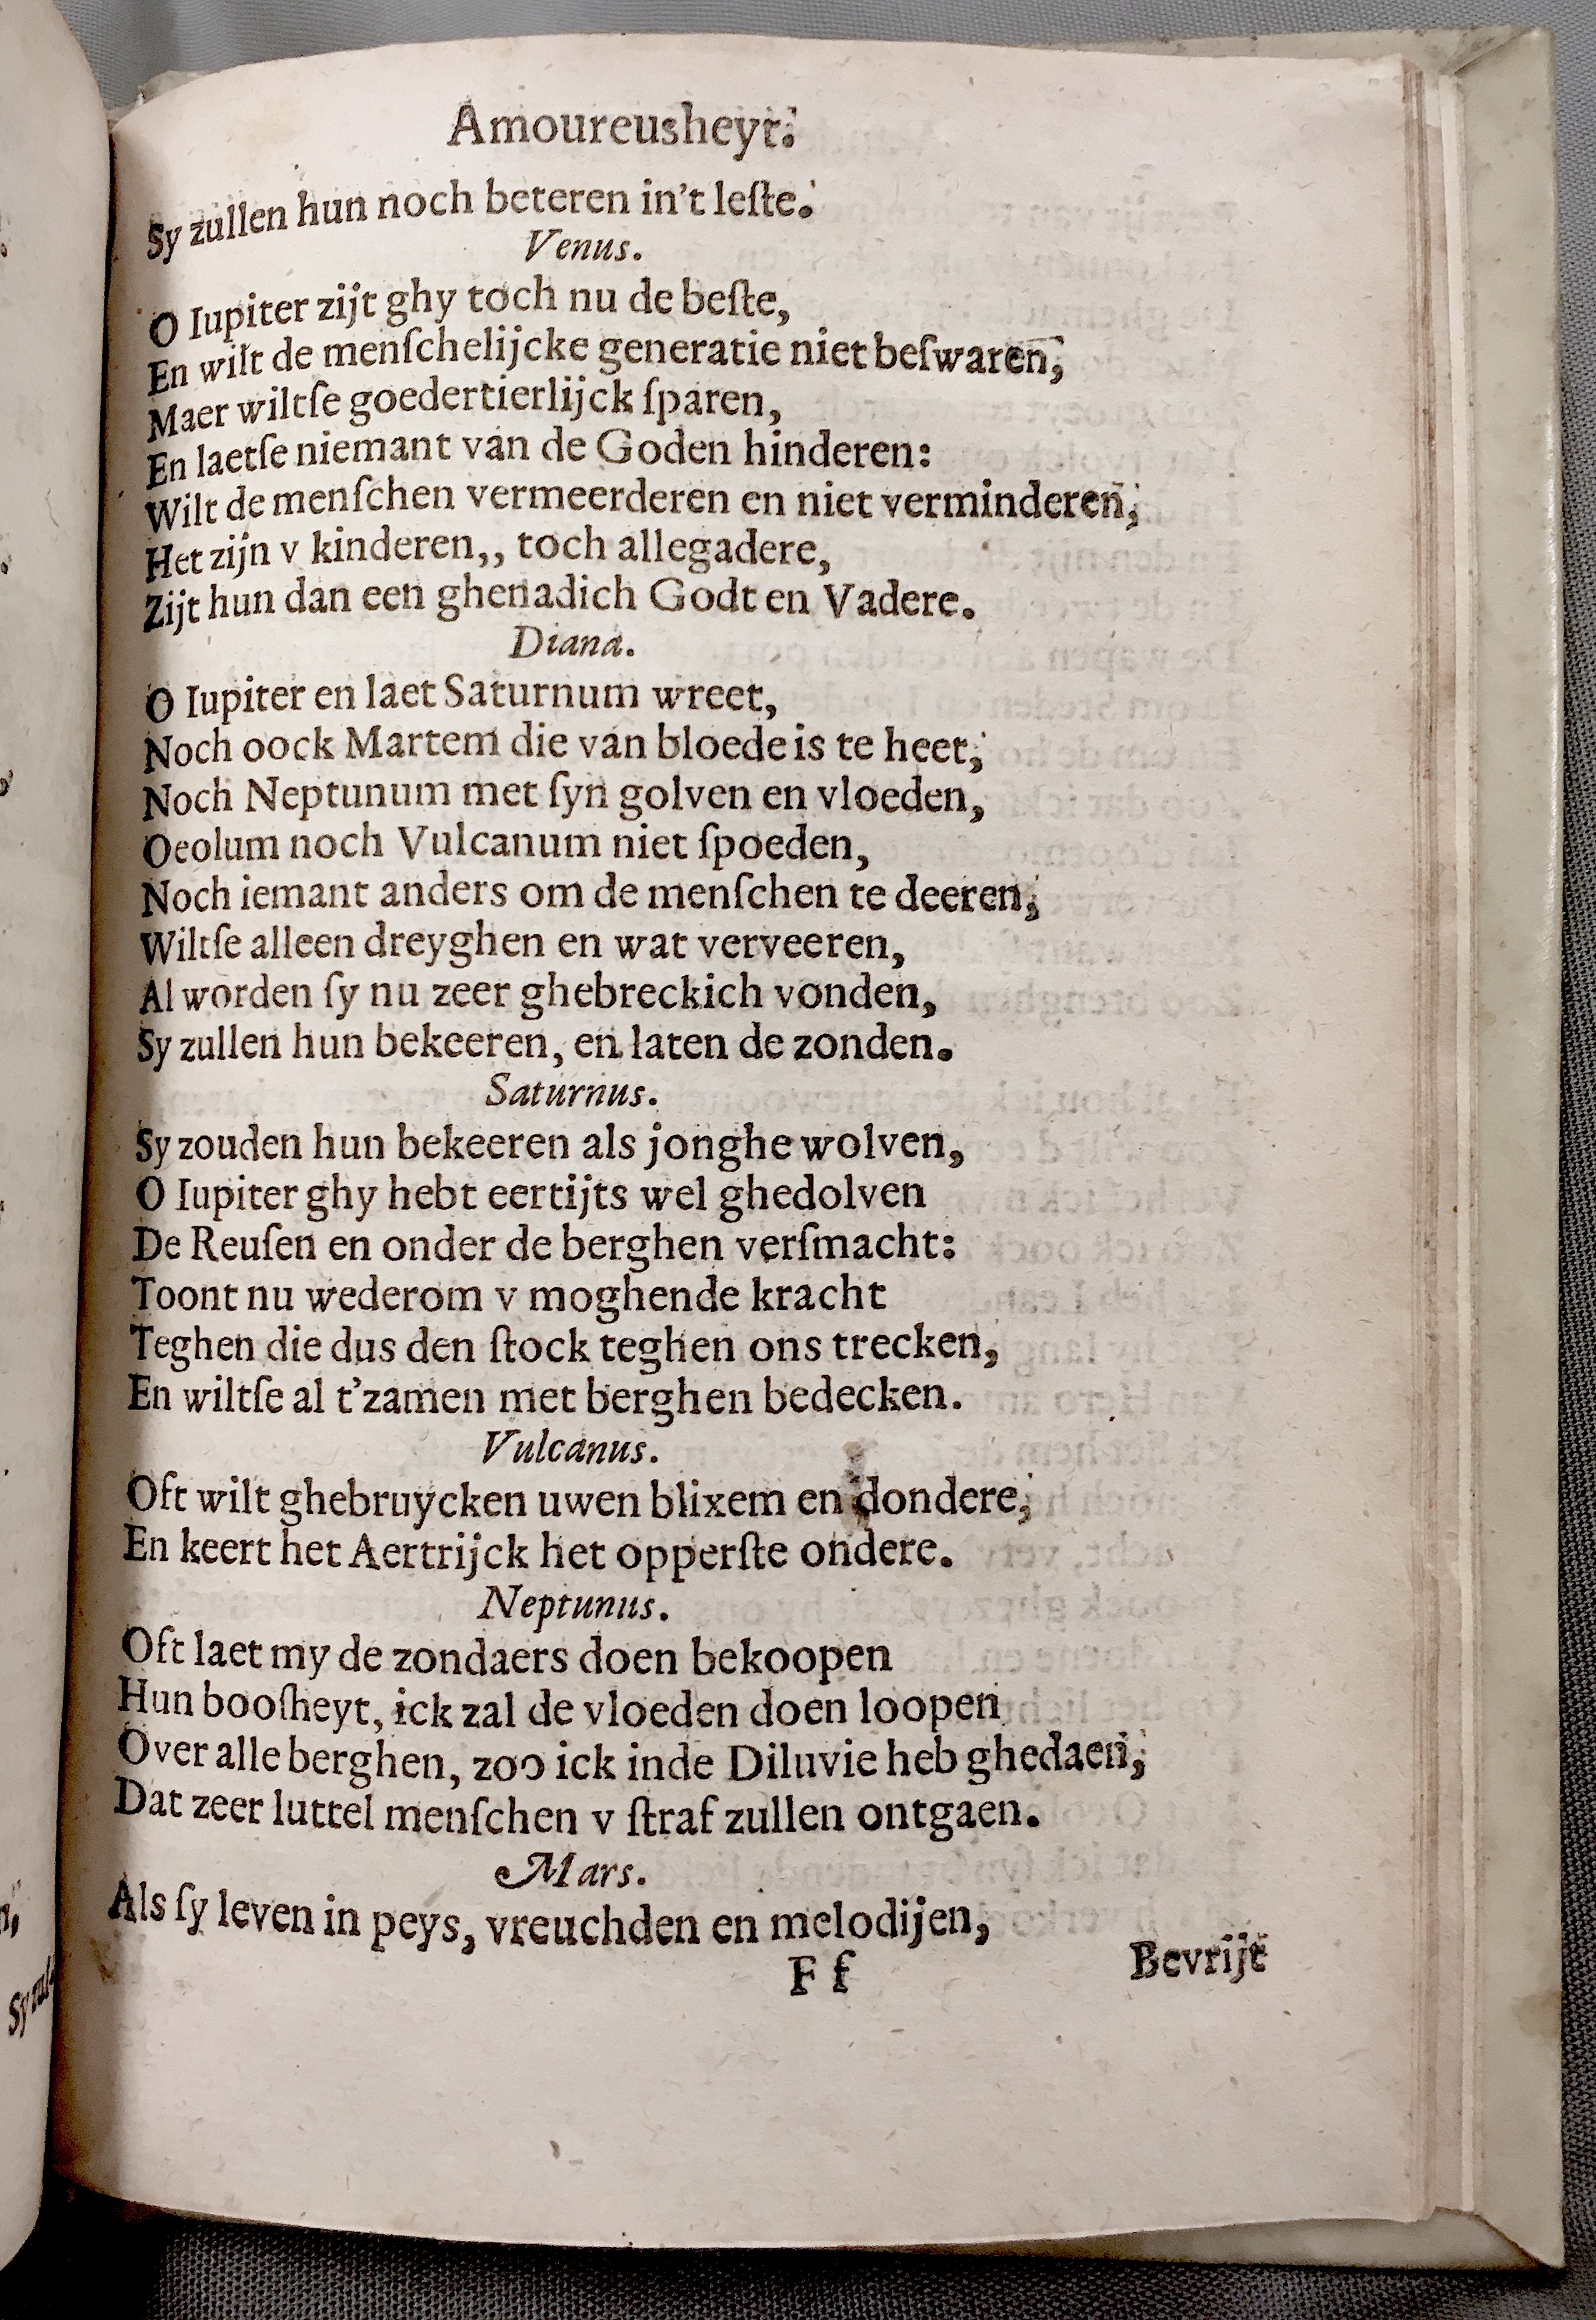 Amoureusheyt.
Sy zullen hun noch beteren in't leſte.
Venus.
O Iupiter zijt ghy toch nu de beſte,
En wilt de menſchelijcke generatie niet beſwaren,
Maer wiltſe goedertierlijck ſparen,
En laetſe niemant van de Goden hinderen:
Wilt de menſchen vermeerderen en niet verminderen,
Het zijn v kinderen,, toch allegadere,
Zijt hun dan een ghenadich Godt en Vadere.
Diana.
O Iupiter en laet Saturnum wreet,
Noch oock Martem die van bloede is te heet,
Noch Neptunum met ſyn golven en vloeden,
Oeolum noch Vulcanum niet ſpoeden,
Noch iemant anders om de menſchen te deeren,
Wiltſe alleen dreyghen en wat verveeren,
Al worden ſy nu zeer ghebreckich vonden,
Sy zullen hun bekeeren, en laten de zonden.
Saturnus.
Sy zouden hun bekeeren als jonghe wolven,
O Iupiter ghy hebt eertijts wel ghedolven
De Reuſen en onder de berghen verſmacht:
Toont nu wederom v moghende kracht
Teghen die dus den ſtock teghen ons trecken,
En wiltſe al t'zamen met berghen bedecken.
Vulcanus.
Oft wilt ghebruycken uwen blixem en dondere,
En keert het Aertrijck het opperſte ondere.
Neptunus.
Oft laet my de zondaers doen bekoopen
Hun booſheyt, ick zal de vloeden doen loopen
Over alle berghen, zoo ick inde Diluvie heb ghedaen,
Dat zeer luttel menſchen v ſtraf zullen ontgaen.
Mars.
Als ſy leven in peys, vreuchden en melodijen,
F f
Bevrijt